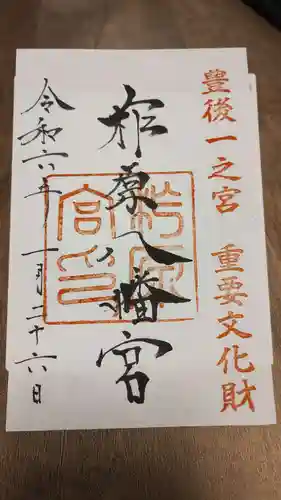 豊後一之宮 重要文化財
柞原八幡宮
令和六年一月二十六日